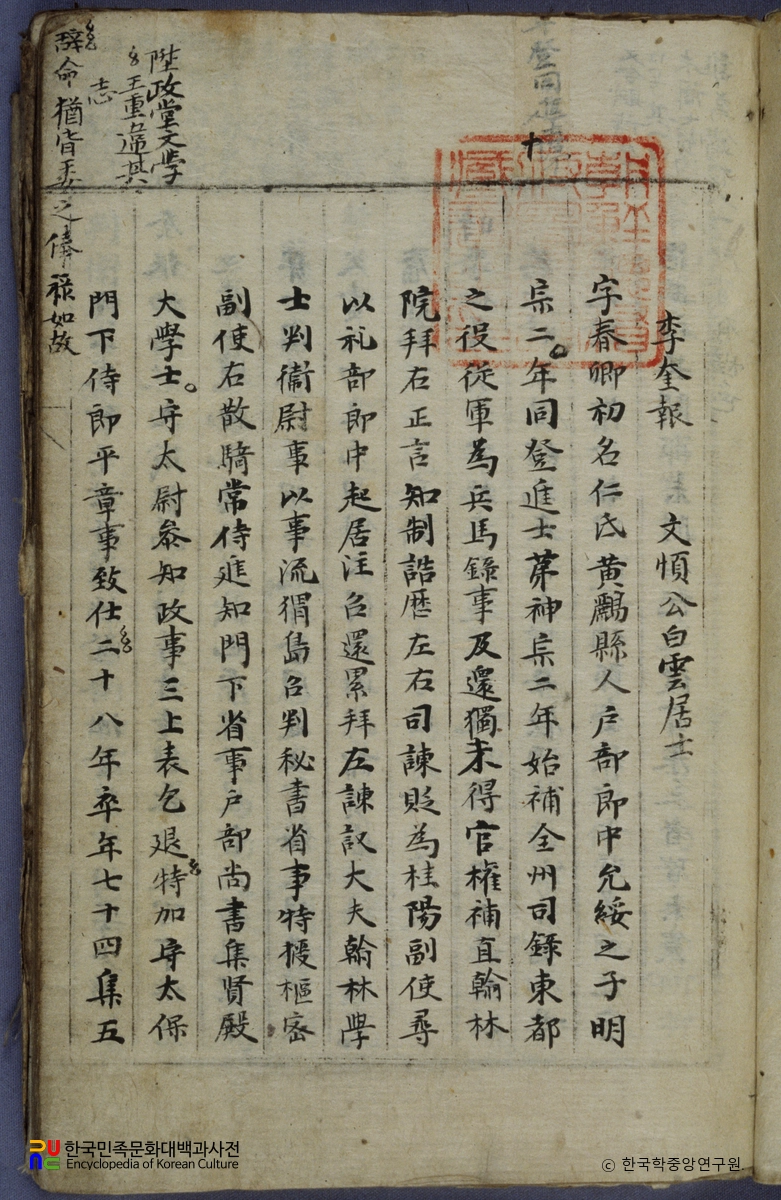 李奎報 文順公白雲居士
字春卿初名仁氐黃驪縣人戶部郎中允綏之子明
宗二年同登進士第神宗二年始補全州司錄東都
之役從軍為兵馬錄事及還獨未得官權補直翰林
院拜右正言知制誥歷左右司諫貶為桂陽副使尋
以礼部郎中起居注召還累拜左諫議大夫翰林學
士判衞尉事以事流猬島召判秘書省事特擢樞密
副使右散騎常侍進知門下省事戶部尚書集賢殿
大學士守太尉叅知政事三上表乞退特加守太保
門下侍郎平章事致仕二十八年卒年七十四集五
陞政堂文學
王重違其
志
辭命猶皆委之俸祿如故
한국민족문화대백과사전
Encyclopedia of Korean Culture
© 한국학중앙연구원